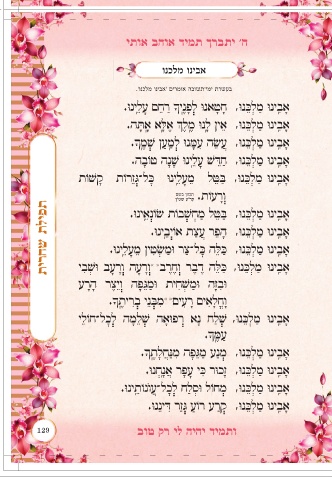 ה' יתברך תמיד אוהב אותי
אבינו מלכנו
בעשרת ימי תשובה אומרים 'אבינו מלכנו'.
אָבִינוּ מַלְכֵּנוּ, חָטָאנוּ לְפָנֶיךָ רַחֵם עָלֵינוּ.
אָבִינוּ מַלְכֵּנוּ, אֵין לָנוּ מֶלֶךְ אֶלָּא אָתָּה.
אָבִינוּ מַלְכֵּנוּ, עֲשֵׂה עִמָּנוּ לְמַעַן שְׁמֶךָ.
אָבִינוּ מַלְכֵּנוּ, חַדֵּשׁ עָלֵינוּ שָׁנָה טוֹבָה.
אָבִינוּ מַלְכֵּנוּ, בַּטֵּל מֵעָלֵינוּ כָּל־גְּזֵרוֹת קָשׁוֹת
וְרָעוֹת.
אָבִינוּ מַלְכֵּנוּ, בַּטֵּל מַחְשְׁבוֹת שׂוֹנְאֵינוּ.
אָבִינוּ מַלְכֵּנוּ, הָפֵר עֲצַת אוֹיְבֵינוּ.
אָבִינוּ מַלְכֵּנוּ, כַּלֵּה כָּל־צַר וּמַשְׂטִין מֵעָלֵינוּ.
אָבִינוּ מַלְכֵּנוּ, כַּלֵּה דֶּבֶר וְחֶרֶב וְרָעָה וְרָעָב וּשְׁבִי
וּבִזָּה וּמַשְׁחִית וּמַגֵּפָה וְיֵצֶר הָרָע
וָחֳלָאִים רָעִים מִבְּנֵי בְרִיתֶךָ.
אָבִינוּ מַלְכֵּנוּ, שְׁלַח נָא רְפוּאָה שְׁלֵמָה לְכָל־חוֹלֵי
עַמֶּךָ.
אָבִינוּ מַלְכֵּנוּ, מְנַע מַגֵּפָה מִנַּחֲלָתֶךָ.
אָבִינוּ מַלְכֵּנוּ, זָכוּר כִּי עָפָר אֲנָחְנוּ.
אָבִינוּ מַלְכֵּנוּ, מְחוֹל וּסְלַח לְכָל־עֲוֹנוֹתֵינוּ.
אָבִינוּ מַלְכֵּנוּ, קְרַע רוֹעַ גְּזַר דִּינֵנוּ.
תפילת שחרית
129
ותמיד יהיה לי רק טוב